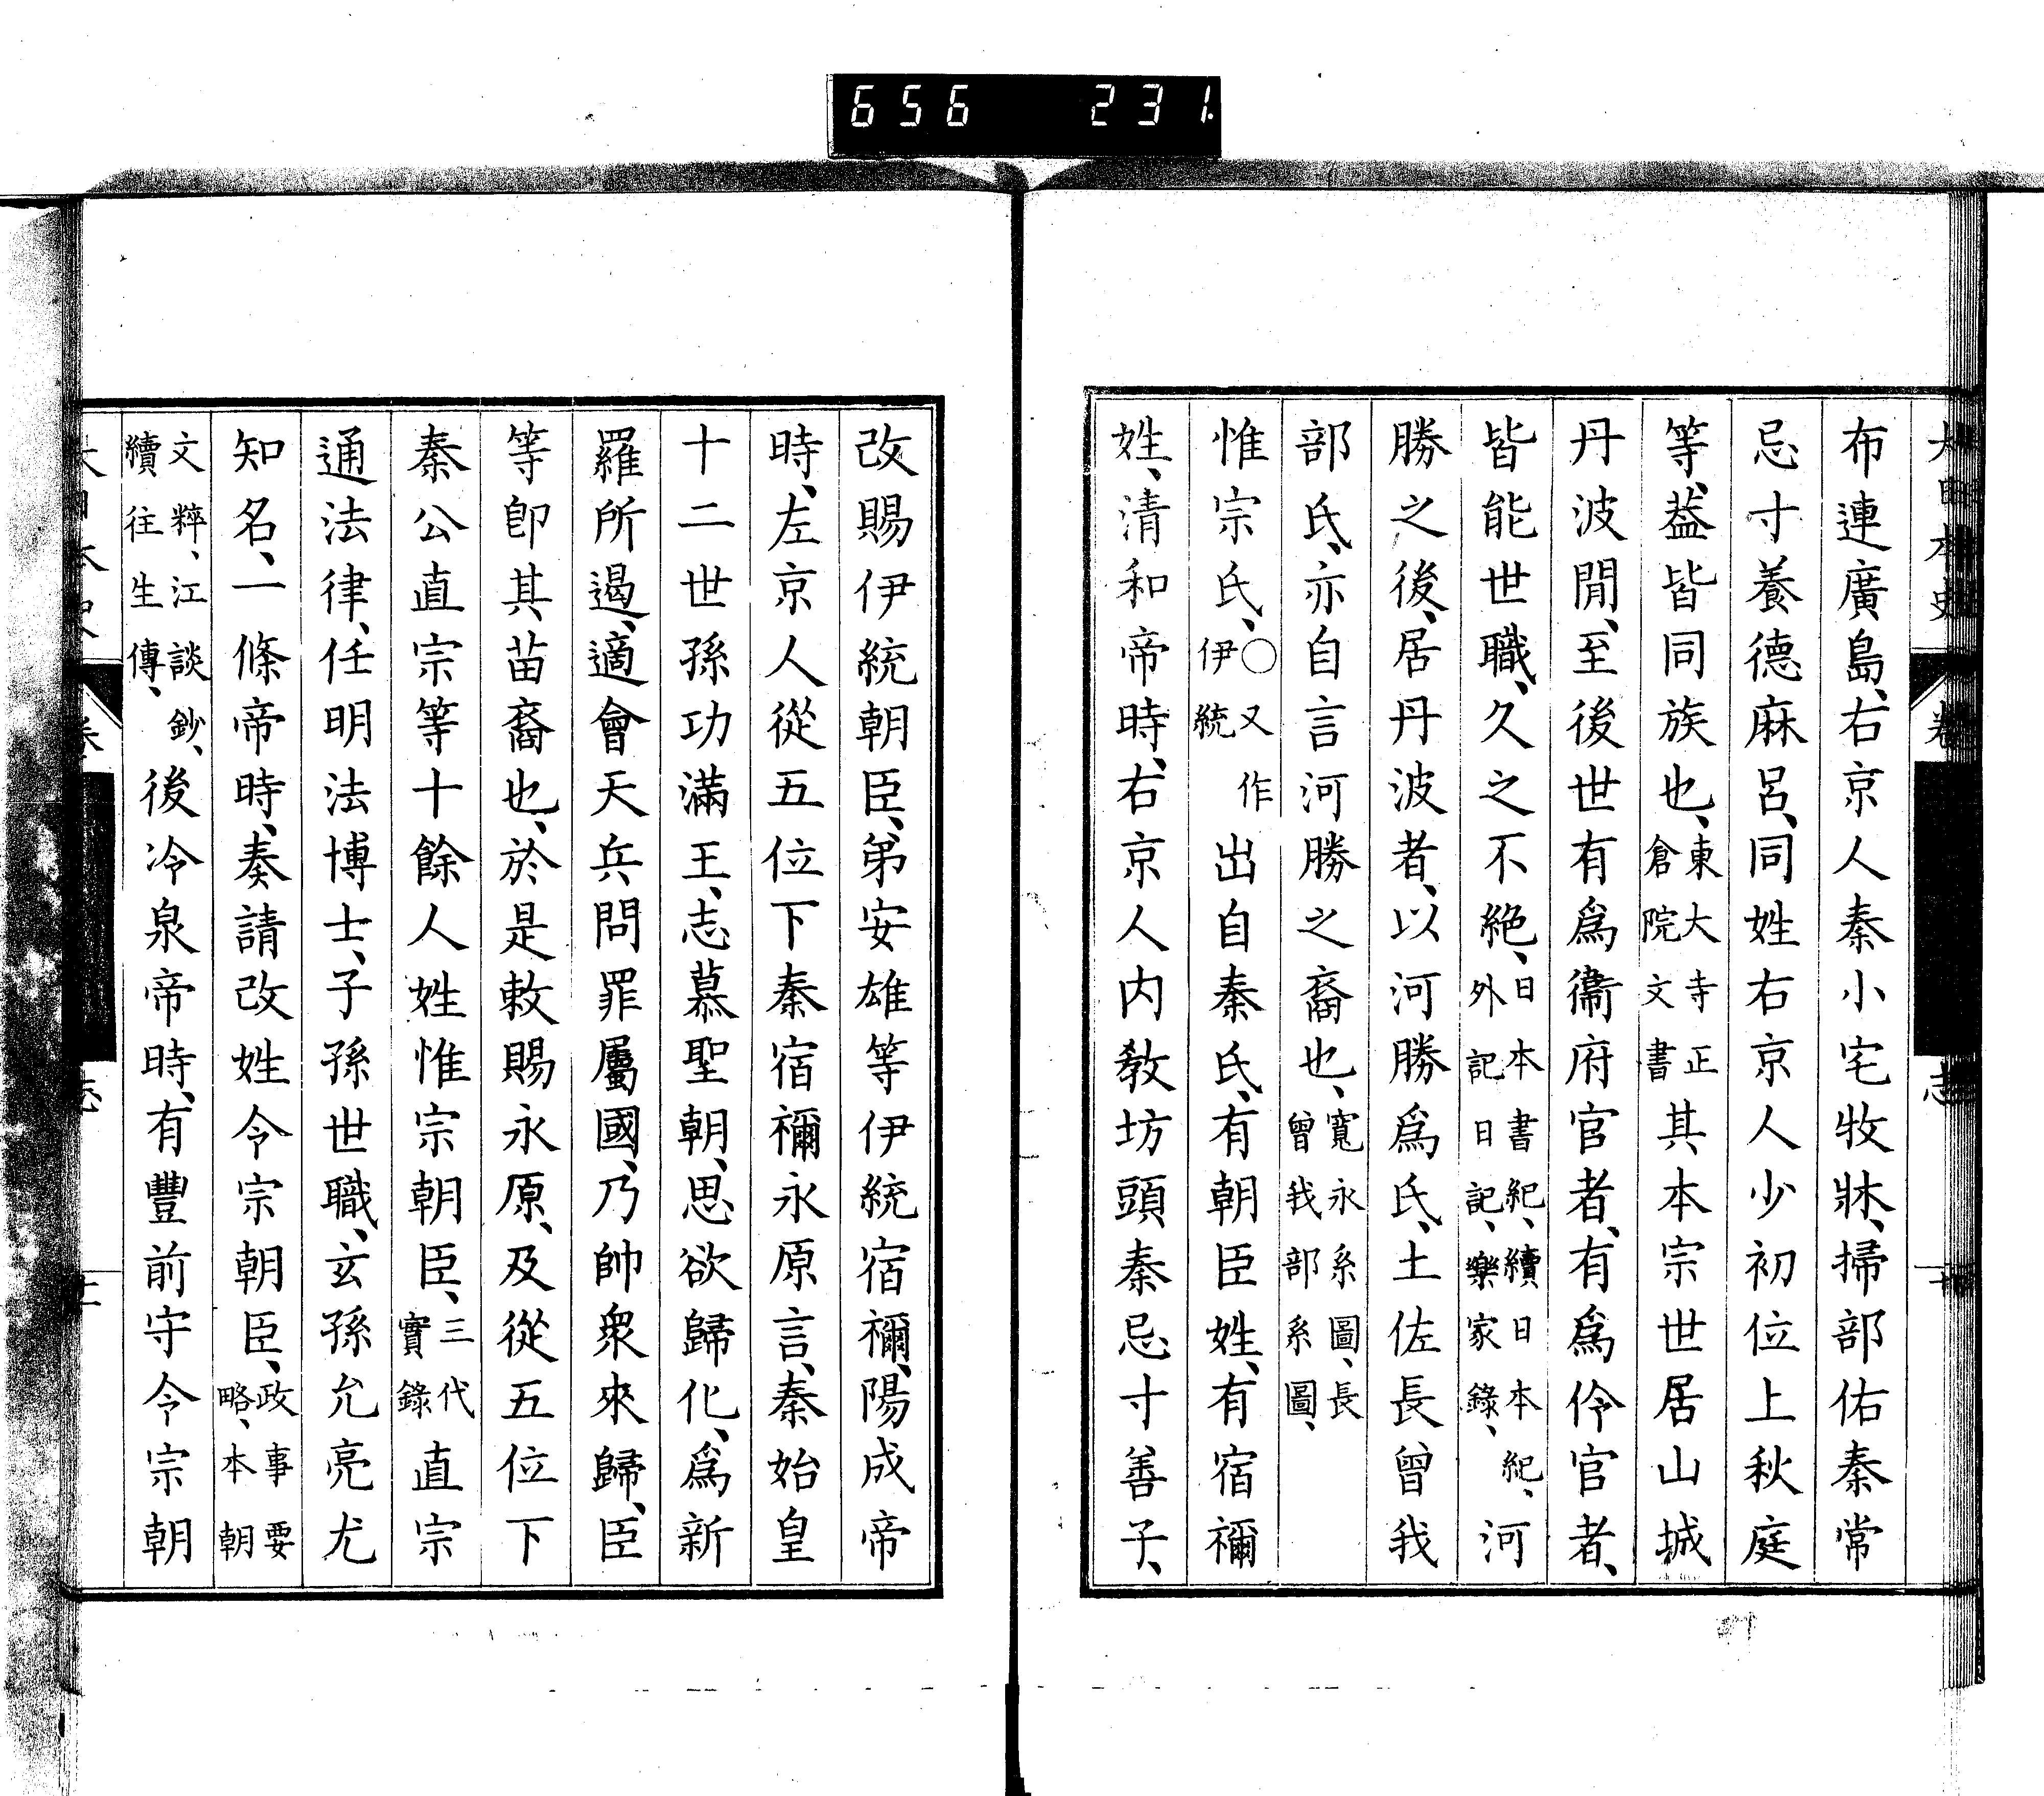 656 231
布連廣島、右京人秦小宅牧牀、掃部佑秦常
忌寸養德麻呂、同姓右京人少初位上秋庭
等、葢皆同族也、東大寺正倉院文書其本宗世居山城
丹波閒、至後世有爲衞府官者、有爲伶官者、
皆能世職、久之不絶、日本書紀、續日本紀、外記日記、樂家錄、河
勝之後、居丹波者、以河勝爲氏、土佐長曾我
部氏、亦自言河勝之裔也、寬永系圖、長曾我部系圖、
惟宗氏、○又作伊統出自秦氏、有朝臣姓、有宿禰
姓、清和帝時、右京人内教坊頭秦忌寸善子、
改賜伊統朝臣、弟安雄等伊統宿禰、陽成帝
時、左京人從五位下秦宿禰永原言、秦始皇
十二世孫功滿王、志慕聖朝、思欲歸化、爲新
羅所遏、適會天兵問罪屬國、乃帥衆來歸、臣
等卽其苗裔也、於是敕賜永原、及從五位下
秦公直宗等十餘人姓惟宗朝臣、三代實錄直宗
通法律、任明法博士、子孫世職、玄孫允亮尤
知名、一條帝時、奏請改姓令宗朝臣、政事要略、本朝
文粹、江談鈔、續往生傳、後冷泉帝時、有豐前守令宗朝